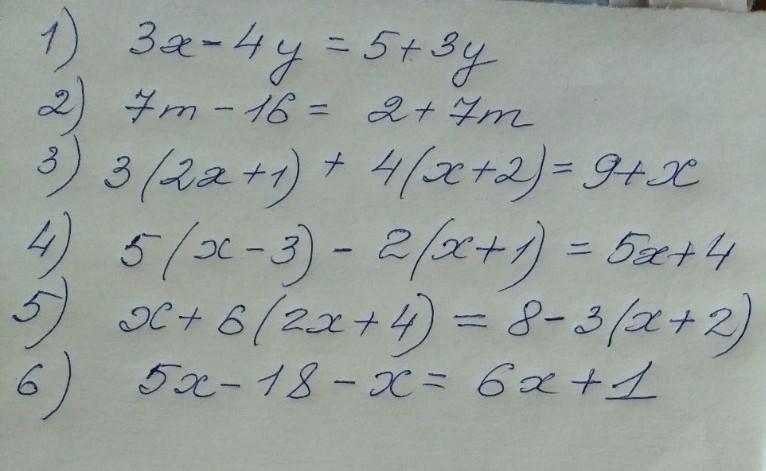 1) 3x - 4y = 5 + 3y
2) 7m - 16 = 2 + 7m
3) 3(2x+1) + 4(x+2) = 9+x
4) 5(x-3) - 2(x+1) = 5x+4
5) x + 6(2x+4) = 8 - 3(x+2)
6) 5x - 18 - x = 6x + 1